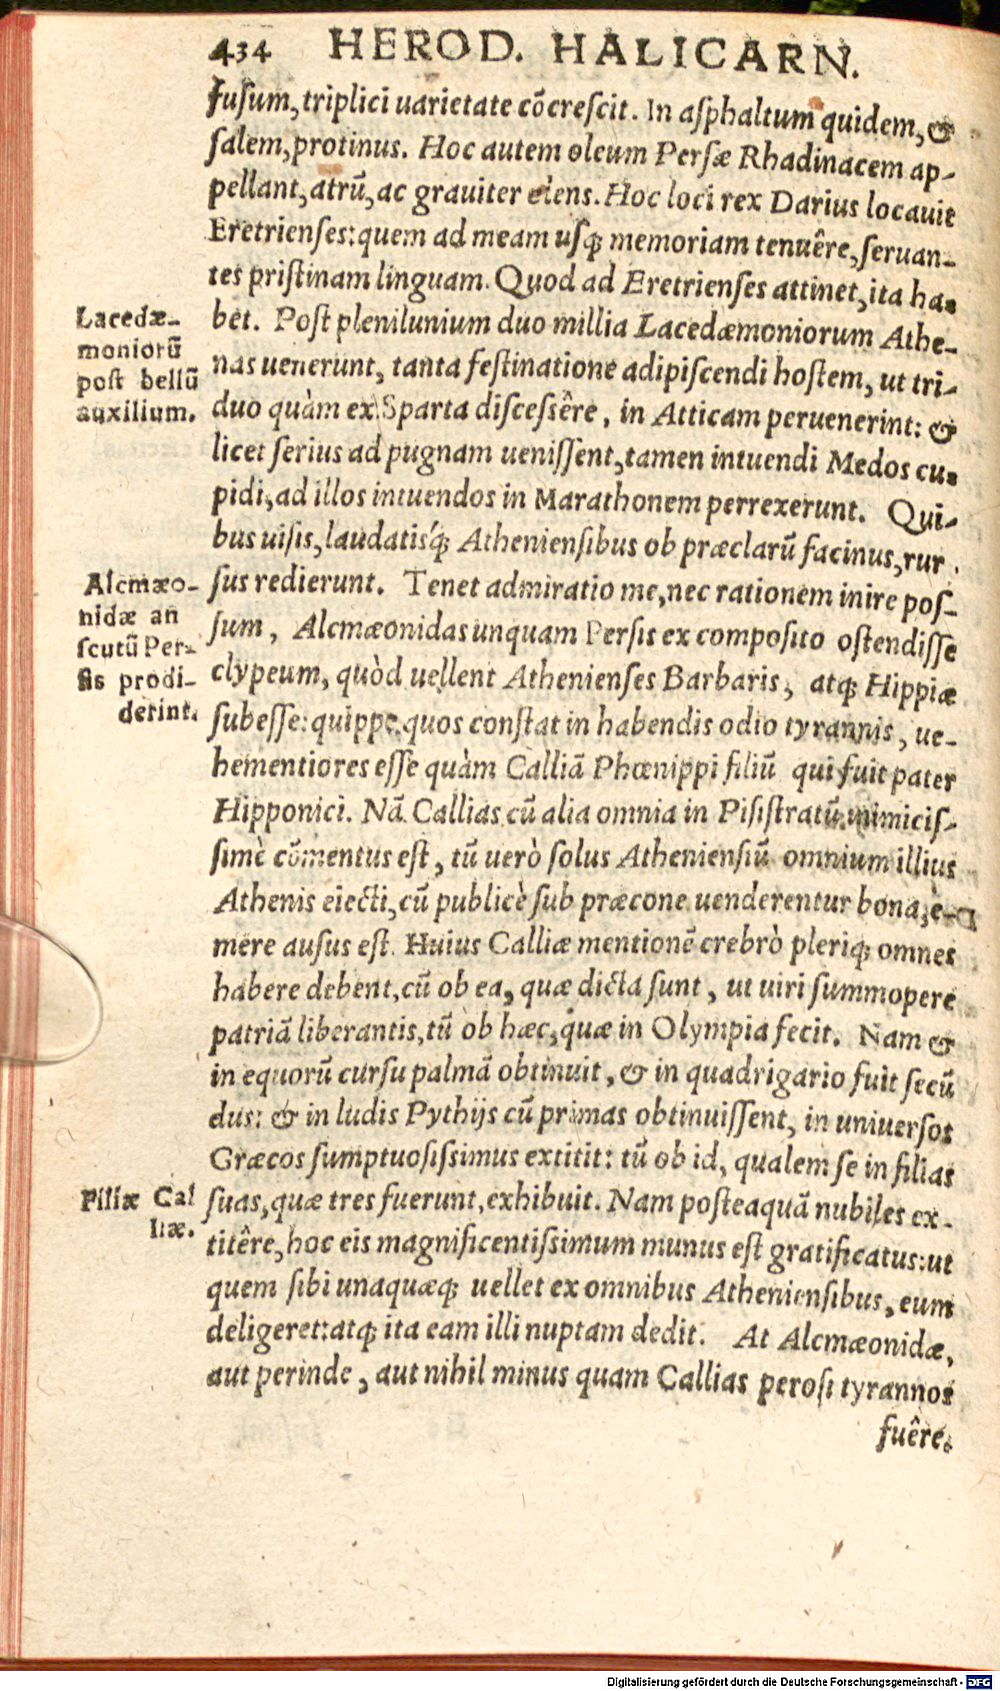 434 HEROD. HALICARN.
fusum, triplici uarietate cõcrescit. In asphaltum quidem, &
salem, protinus. Hoc autem oleum Persæ Rhadinacem ap-
pellant, atrũ, ac grauiter olens. Hoc loci rex Darius locauit
Eretrienses: quem ad meam usq; memoriam tenuêre, seruan-
tes pristinam linguam. Quod ad Eretrienses attinet, ita ha-
bet. Post plenilunium duo millia Lacedæmoniorum Athe-
nas uenerunt, tanta festinatione adipiscendi hostem, ut tri-
duo quàm ex Sparta discessêre, in Atticam peruenerint: &
licet serius ad pugnam uenissent, tamen intuendi Medos cu-
pidi, ad illos intuendos in Marathonem perrexerunt. Qui-
bus uisis, laudatisq́; Atheniensibus ob præclarũ facinus, rur
sus redierunt. Tenet admiratio me, nec rationem inire pos-
sum, Alcmæonidas unquam Persis ex composito ostendisse
clypeum, quòd uellent Athenienses Barbaris, atq; Hippiæ
subesse: quippe quos constat in habendis odio tyrannis, ue-
hementiores esse quàm Calliã Phœnippi filiũ qui fuit pater
Hipponici. Nã Callias cũ alia omnia in Pisistratũ inimicis-
simè cõmentus est, tũ uerò solus Atheniensiũ omnium illius
Athenis eiecti, cũ publicè sub præcone uenderentur bona, è-
mere ausus est. Huius Calliæ mentionẽ crebrò pleriq; omnes
habere debent, cũ ob ea, quæ dicta sunt, ut uiri summopere
patriã liberantis, tũ ob hæc, quæ in Olympia fecit. Nam &
in equorũ cursu palmã obtinuit, & in quadrigario fuit secũ
dus: & in ludis Pythijs cũ primas obtinuissent, in uniuersos
Græcos sumptuosissimus extitit: tũ ob id, qualem se in filias
suas, quæ tres fuerunt, exhibuit. Nam posteaquã nubiles ex-
titêre, hoc eis magnificentissimum munus est gratificatus: ut
quem sibi unaquæq; uellet ex omnibus Atheniensibus, eum
deligeret: atq; ita eam illi nuptam dedit. At Alcmæonidæ,
aut perinde, aut nihil minus quam Callias perosi tyrannos
fuêre.
Lacedæ-
moniorũ
post bellũ
auxilium.
Alcmæo-
nidæ an
scutũ Per-
sis prodi-
derint.
Filiæ Cal
liæ.
Digitalisierung gefördert durch die Deutsche Forschungsgemeinschaft - DFG